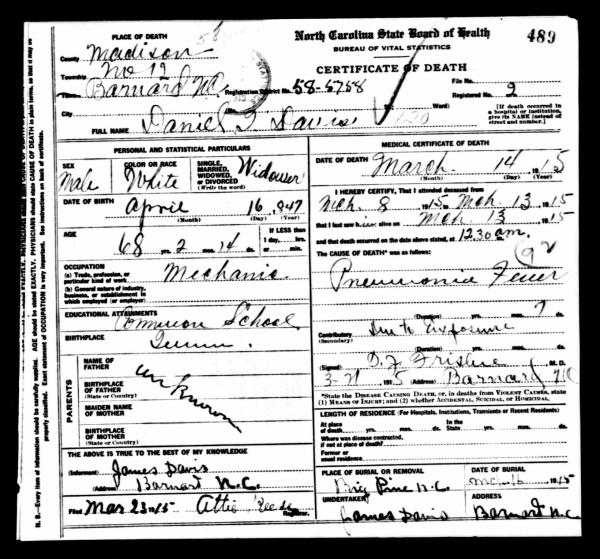 North Carolina State Board of Health
BUREAU OF VITAL STATISTICS
CERTIFICATE OF DEATH
489
PLACE OF DEATH
County Madison
Township No 12
Town Barnard N.C. Registration District No. 58-5758
File No.
Registered No. 2
City (No. Ward)
[If death occurred in a hospital or institution, give its NAME instead of street and number.]
FULL NAME Daniel Davis
PERSONAL AND STATISTICAL PARTICULARS
SEX Male
COLOR OR RACE White
SINGLE, MARRIED, WIDOWED, OR DIVORCED (Write the word) Widower
DATE OF BIRTH April 16, 847
(Month) (Day) (Year)
AGE 68 yrs. 2 mos. 14 ds.
If LESS than 1 day, hrs. or min.
OCCUPATION
(a) Trade, profession, or particular kind of work Mechanic
(b) General nature of industry, business, or establishment in which employed (or employer)
EDUCATIONAL ATTAINMENTS Common School
BIRTHPLACE
PARENTS
NAME OF FATHER
unknown
BIRTHPLACE OF FATHER (State or Country)
MAIDEN NAME OF MOTHER
BIRTHPLACE OF MOTHER (State or Country)
THE ABOVE IS TRUE TO THE BEST OF MY KNOWLEDGE
(Informant) James Davis
(Address) Barnart N.C.
Filed Mar 23 1915 Attie Registrar.
MEDICAL CERTIFICATE OF DEATH
DATE OF DEATH March 14 1915
(Month) (Day) (Year)
I HEREBY CERTIFY, That I attended deceased from
Mch. 8 1915 to Mch. 13 1915
that I last saw him alive on Mch. 13 1915
and that death occurred on the date above stated, at 12.30 a.m.
The CAUSE OF DEATH* was as follows:
92
Pneumonia Fever
(Duration) yrs. mos. 7 ds.
Contributory (Secondary) Due to Exposure
(Duration) yrs. mos. ds.
(Signed) M. D.
3-21 1915 (Address) Barnard N.C.
*State the DISEASE CAUSING DEATH, or, in deaths from VIOLENT CAUSES, state (1) MEANS OF INJURY; and (2) whether ACCIDENTAL, SUICIDAL, or HOMICIDAL.
LENGTH OF RESIDENCE (For Hospitals, Institutions, Transients or Recent Residents)
At place of death yrs. mos. ds. In the State yrs. mos. ds.
Where was disease contracted, if not at place of death?
Former or usual residence
PLACE OF BURIAL OR REMOVAL Big Pine N.C.
DATE OF BURIAL Mch 16 1915
UNDERTAKER James Davis
ADDRESS Barnart N.C.